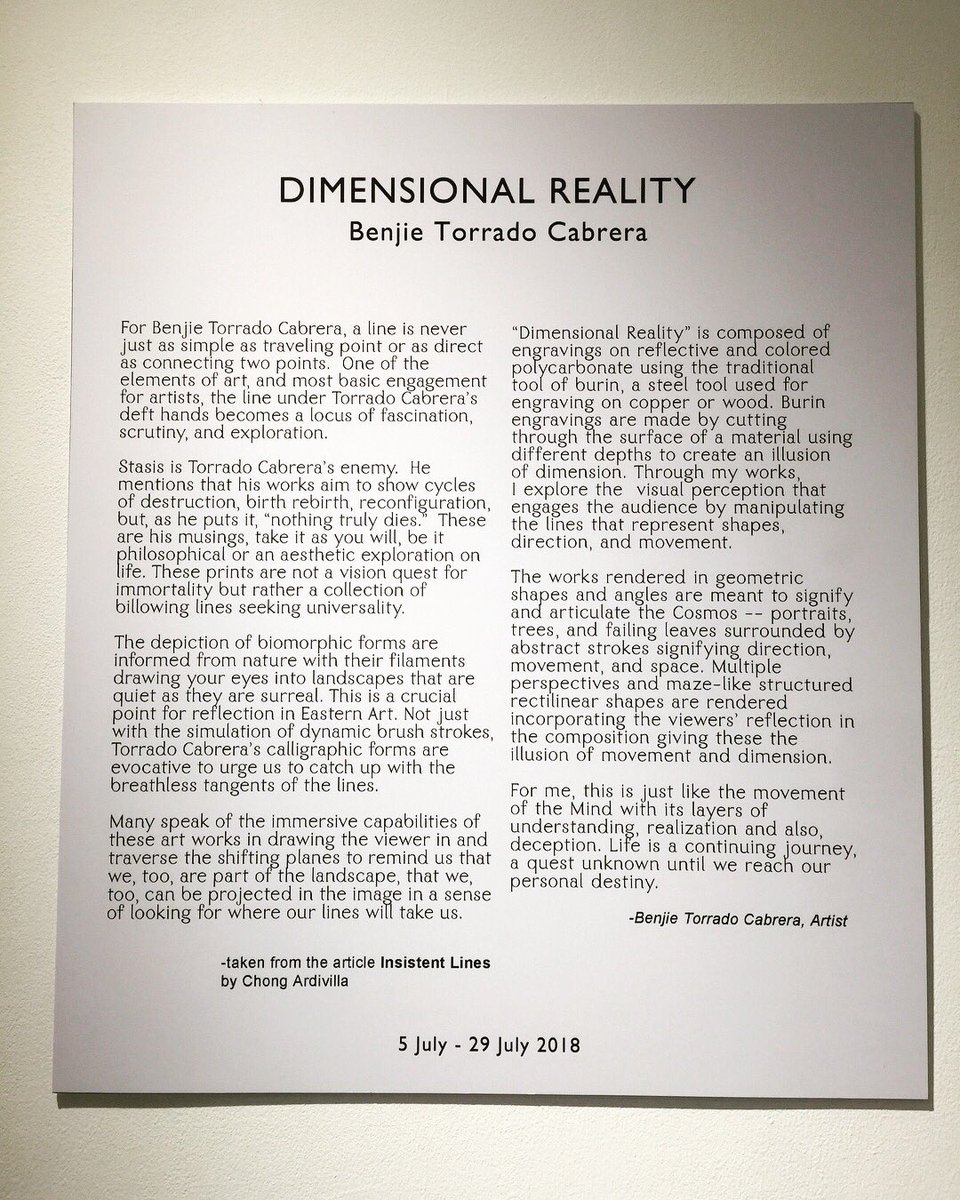 DIMENSIONAL REALITY
Benjie Torrado Cabrera
For Benjie Torrado Cabrera, a line is never
just as simple as traveling point or as direct
as connecting two points. One of the
elements of art, and most basic engagement
for artists, the line under Torrado Cabrera's
deft hands becomes a locus of fascination,
scrutiny, and exploration.
Stasis is Torrado Cabrera's enemy. He
mentions that his works aim to show cycles
of destruction, birth rebirth, reconfiguration,
but, as he puts it, "nothing truly dies." These
are his musings, take it as you will, be it
philosophical or an aesthetic exploration on
life. These prints are not a vision quest for
immortality but rather a collection of
billowing lines seeking universality.
The depiction of biomorphic forms are
informed from nature with their filaments
drawing your eyes into landscapes that are
quiet as they are surreal. This is a crucial
point for reflection in Eastern Art. Not just
with the simulation of dynamic brush strokes,
Torrado Cabrera's calligraphic forms are
evocative to urge us to catch up with the
breathless tangents of the lines.
Many speak of the immersive capabilities of
these art works in drawing the viewer in and
traverse the shifting planes to remind us that
we, too, are part of the landscape, that we,
too, can be projected in the image in a sense
of looking for where our lines will take us.
-taken from the article Insistent Lines
by Chong Ardivilla
"Dimensional Reality" is composed of
engravings on reflective and colored
polycarbonate using the traditional
tool of burin, a steel tool used for
engraving on copper or wood. Burin
engravings are made by cutting
through the surface of a material using
different depths to create an illusion
of dimension. Through my works,
I explore the visual perception that
engages the audience by manipulating
the lines that represent shapes,
direction, and movement.
The works rendered in geometric
shapes and angles are meant to signify
and articulate the Cosmos -- portraits,
trees, and failing leaves surrounded by
abstract strokes signifying direction,
movement, and space. Multiple
perspectives and maze-like structured
rectilinear shapes are rendered
incorporating the viewers' reflection in
the composition giving these the
illusion of movement and dimension.
For me, this is just like the movement
of the Mind with its layers of
understanding, realization and also,
deception. Life is a continuing journey,
a quest unknown until we reach our
personal destiny.
-Benjie Torrado Cabrera, Artist
5 July - 29 July 2018